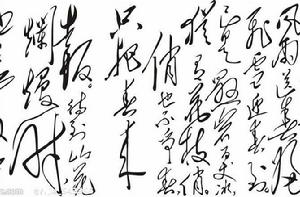 风雨送春归
飞雪迎春到
已是悬崖百丈冰
犹有花枝俏
俏也不争春
只把春来
报。待到山花
烂漫时